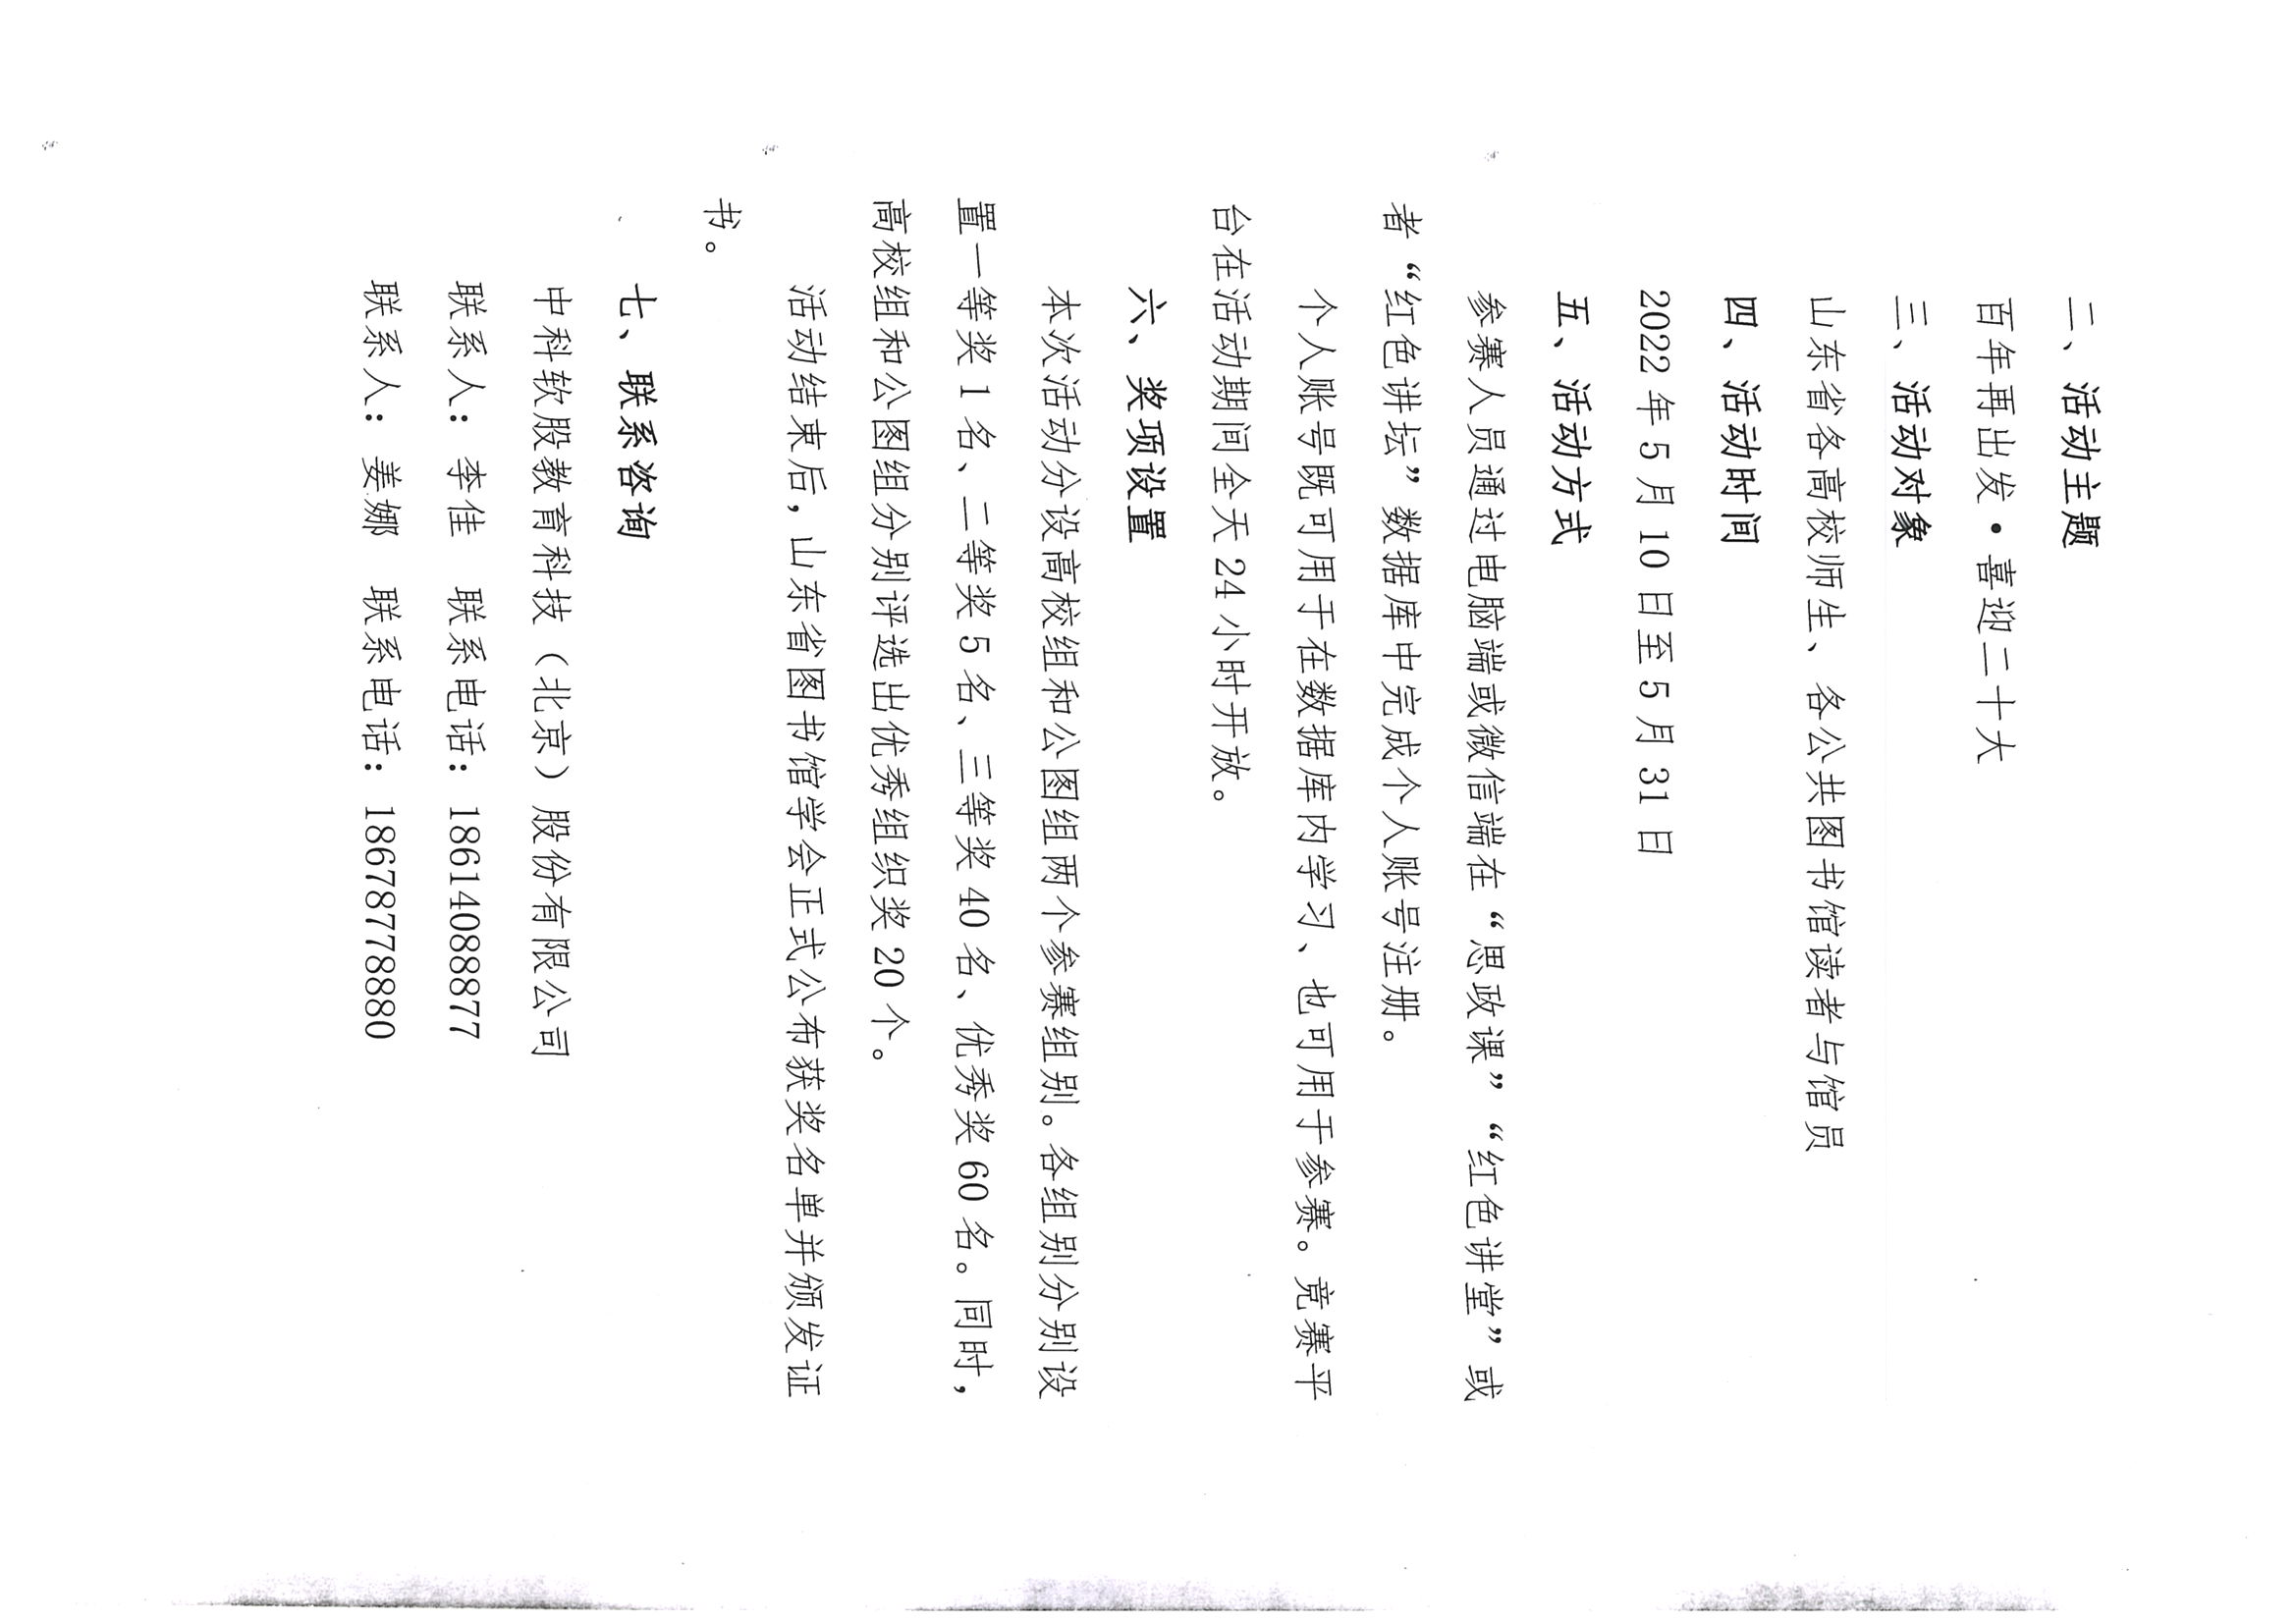 二、活动主题
百年再出发·喜迎二十大
三、活动对象
山东省各高校师生、各公共图书馆读者与馆员
四、活动时间
2022 年 5 月 10 日至 5 月 31 日
五、活动方式
参赛人员通过电脑端或微信端在“思政课”“红色讲堂”或
者“红色讲坛”数据库中完成个人账号注册。
个人账号既可用于在数据库内学习、也可用于参赛。竞赛平
台在活动期间全天 24 小时开放。
六、奖项设置
本次活动分设高校组和公图组两个参赛组别。各组别分别设
置一等奖 1 名、二等奖 5 名、三等奖 40 名、优秀奖 60 名。同时，
高校组和公图组分别评选出优秀组织奖 20 个。
活动结束后，山东省图书馆学会正式公布获奖名单并颁发证
书。
七、联系咨询
中科软股教育科技（北京）股份有限公司
联系人：李佳 联系电话：18614088877
联系人：姜娜 联系电话：18678778880